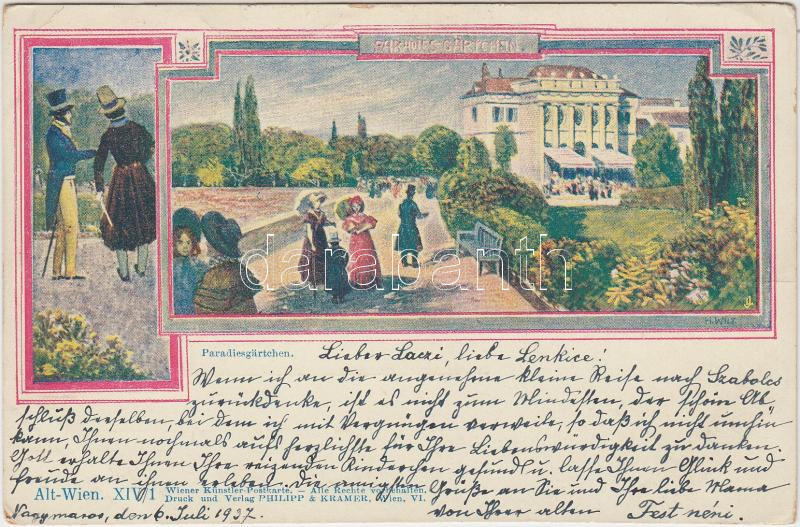 PARADIES-GÄRTCHEN.
H. WILT
Paradiesgärtchen.
Lieber Laczi, liebe Lenkice!
Wenn ich an die angenehme kleine Reise nach Szabolcs
zurückdenke, ist es nicht zum Mindesten, der schöne Ab
schluß derselben, bei dem ich mit Vergnügen verweile, so daß ich nicht umhin
kann, Ihnen nochmals aufs herzlichste für Ihre Liebenswürdigkeit zu danken.
Gott erhalte Ihnen Ihre reizenden Kinderchen gesund u. lasse Ihnen Glück und
Freude an ihnen erleben. Die innigsten
Grüße an Sie und Ihre liebe Mama
von Ihrer alten Fest neni.
Alt-Wien. XIV/1
Wiener Künstler-Postkarte. – Alle Rechte vorbehalten.
Druck und Verlag PHILIPP & KRAMER, Wien, VI.
Nagymaros, den 6. Juli 1937.
darabanth